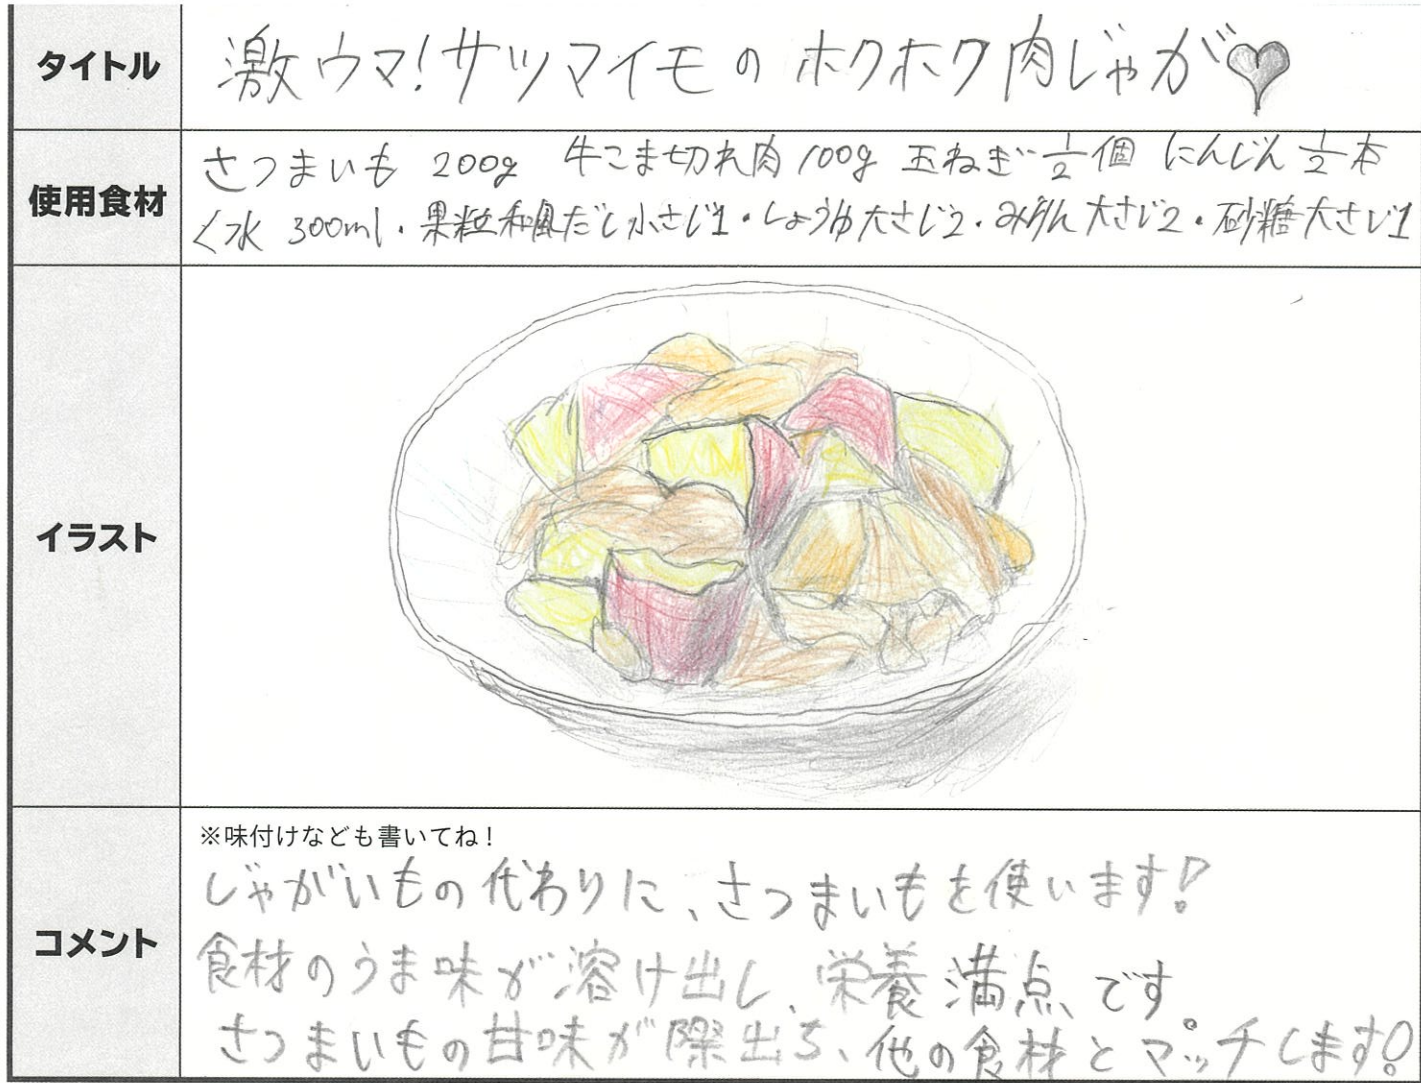 タイトル
激ウマ!サツマイモのホクホク肉じゃが♥
使用食材
さつまいも 200g 牛こま切れ肉 100g 玉ねぎ 1/2個 にんじん 1/2本
く水 300ml・果粒和風だし小さじ1・しょうゆ大さじ2・みりん大さじ2・砂糖大さじ1
イラスト
コメント
※味付けなども書いてね!
じゃがいもの代わりに、さつまいもを使います!
食材のうま味が溶け出し、栄養満点です。
さつまいもの甘味が際出ち、他の食材とマッチします!